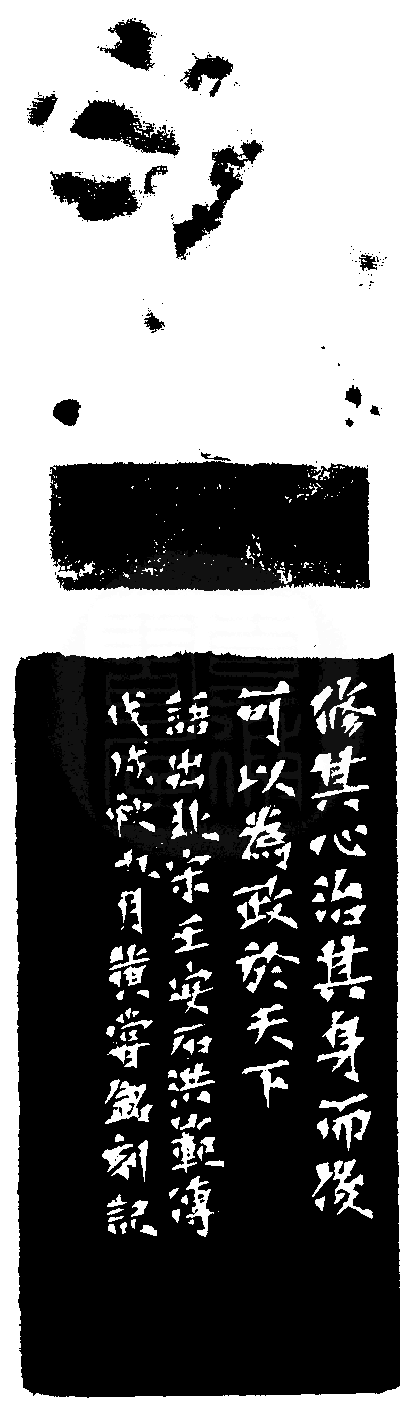 修其心治其身而後
可以為政於天下
語出北宋王安石洪範傳
戊戌秋九月黃嘗銘刻記